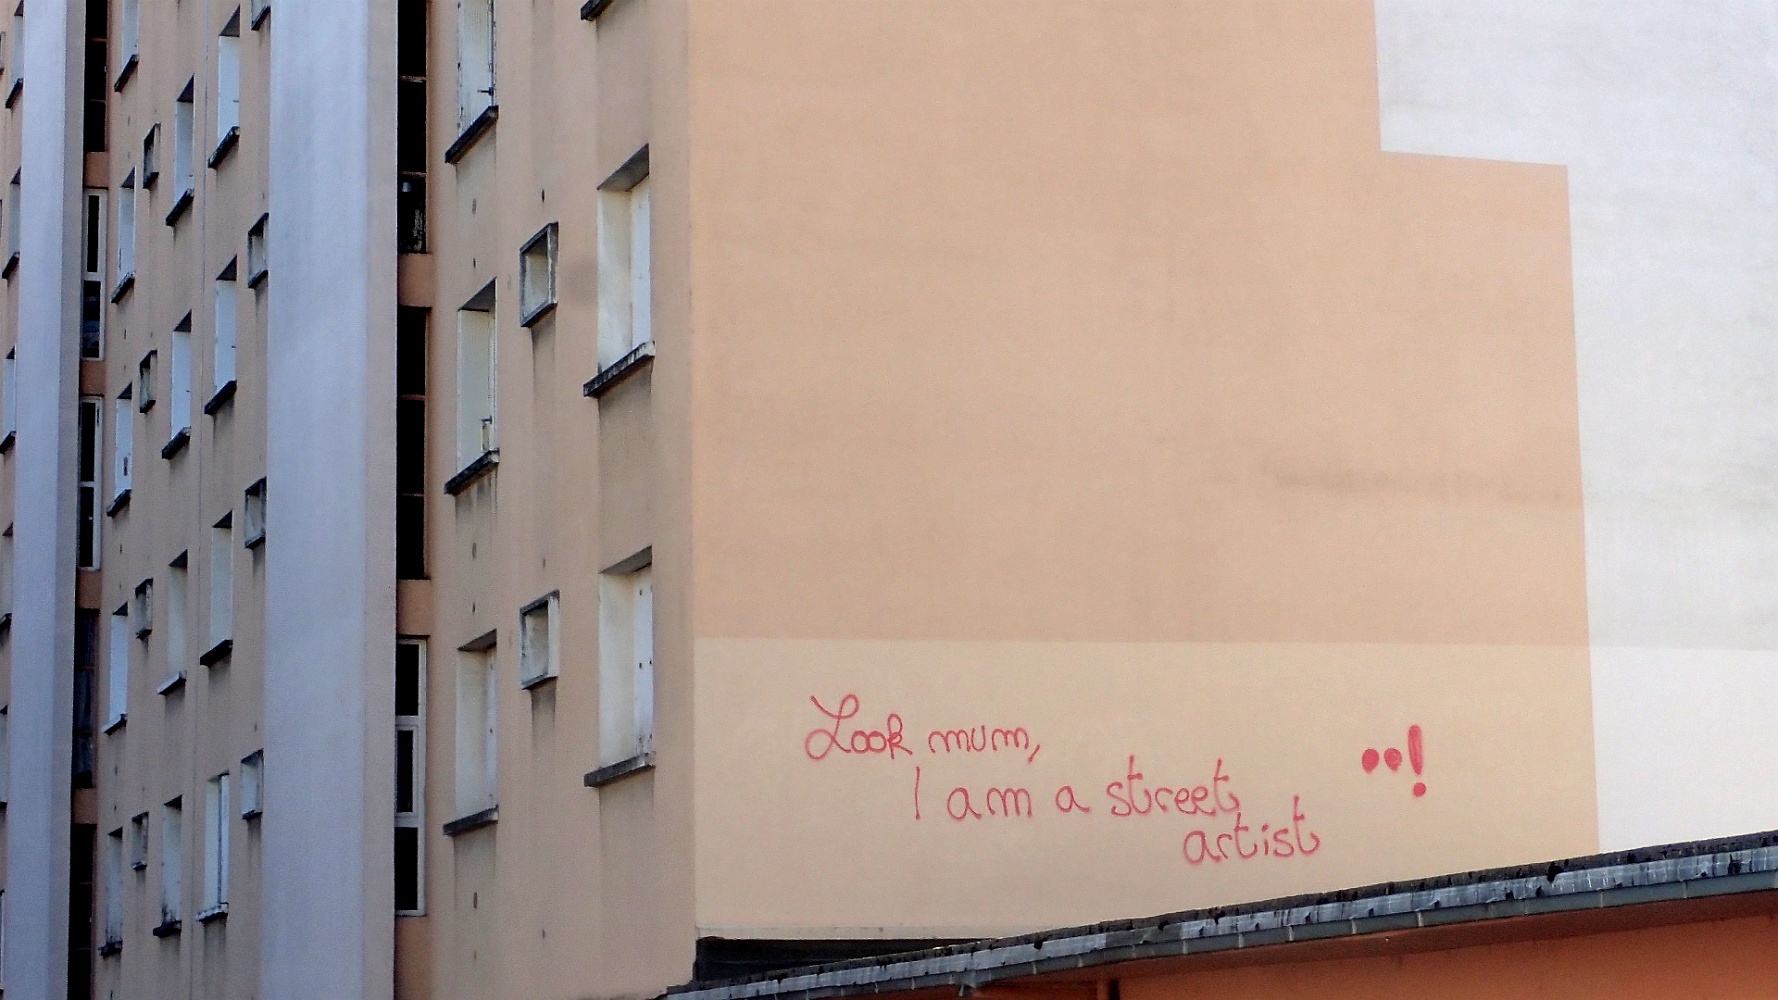 Look mum,
I am a street
artist ..!